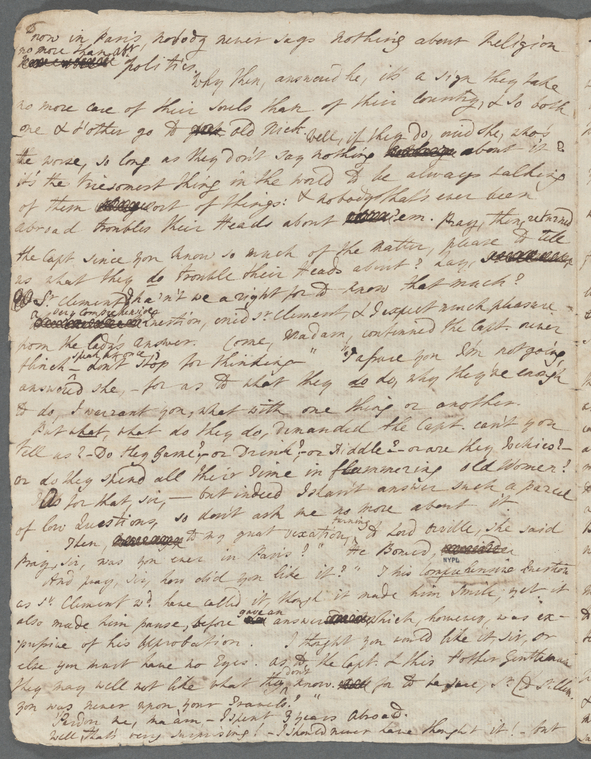 now in Paris, nobody never says nothing about Religion
no more than
politics.
Why then, answered he, it's a sign they take
no more care of their Souls than of their country, & so both
one & t'other go to old Nick. Well, if they do, cried she, who's
the worse, so long as they don't say nothing about it?
it's the tiresomest thing in the world to be always talking
of them sort of things: & nobody that's ever been
abroad troubles their Heads about 'em. Pray, then, returned
the Capt. since you know so much of the matter, please to tell
us what they do trouble their Heads about? hay,
Sr Clement! ha'n't we a right for to know that much?
a very Comprehensive
Question, cried Sr Clement, & I expect much pleasure
from the lady's answer. Come, Madam, continued the Capt. never
flinch - speak at once, don't stop for thinking - " "I assure you I'm not going,
answered she, - for as to what they do do, why they've enough
to do, I warrant you, what with one thing or another.
But what, what do they do, demanded the Capt. can't you
tell us? - Do they Game? - or Drink? - or Fiddle? - or are they Jockies? -
or do they spend all their Time in flummering old Women?
As for that Sir, - but indeed I shan't answer such a parcel
of low Questions, so don't ask me no more about it.
Then, to my great vexation, turning to Lord Orville, she said
Pray, Sir, was you ever in Paris?" He Bowed,
NYPL
And pray, Sir, how did you like it?" This Comprehensive Question
as Sr Clement wd. have called it, though it made him Smile, yet it
also made him pause, before gave an answer which, however, was ex-
pressive of his Approbation. I thought you would like it Sir, or
else you must have no Eyes. as to the Capt. & this t'other Gentleman
they may well not like what they don't know. for to be sure, Sr
you was never upon your Travels." "
Pardon me, ma'am - I spent 3 years Abroad.
Well, that's very surprising! - I should never have thought it! - but